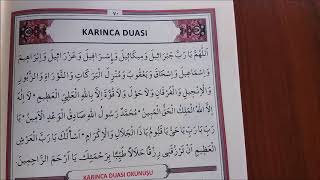 ٧٠
KARINCA DUASI
اَللّٰهُمَّ يَا رَبَّ جَبْرَائِيلَ وَمِيكَائِيلَ وَاِسْرَافِيلَ وَعَزْرَائِيلَ وَاِبْرَاهِيمَ
وَاِسْمَاعِيلَ وَاِسْحَاقَ وَيَعْقُوبَ وَمُنْزِلَ الْبَرَكَاتِ وَالتَّوْرَاةِ وَالزَّبُورِ
وَالْاِنْجِيلِ وَالْفُرْقَانِ وَلَا حَوْلَ وَلَا قُوَّةَ اِلَّا بِاللّٰهِ الْعَلِيِّ الْعَظِيمِ
اِلَّا اللّٰهُ الْمَلِكُ الْحَقُّ الْمُبِينُ مُحَمَّدٌ رَسُولُ اللّٰهِ صَادِقُ الْوَعْدِ الْاَمِينُ
يَا رَبِّ يَا رَبِّ يَا حَيُّ يَا قَيُّومُ يَا ذَا الْجَلَالِ وَالْاِكْرَامِ اَسْاَلُكَ يَا رَبَّ الْعَرْشِ
الْعَظِيمِ اَنْ تَرْزُقَنِي رِزْقًا حَلَالًا طَيِّبًا بِرَحْمَتِكَ يَا اَرْحَمَ الرَّاحِمِينَ
KARINCA DUASI OKUNUŞU